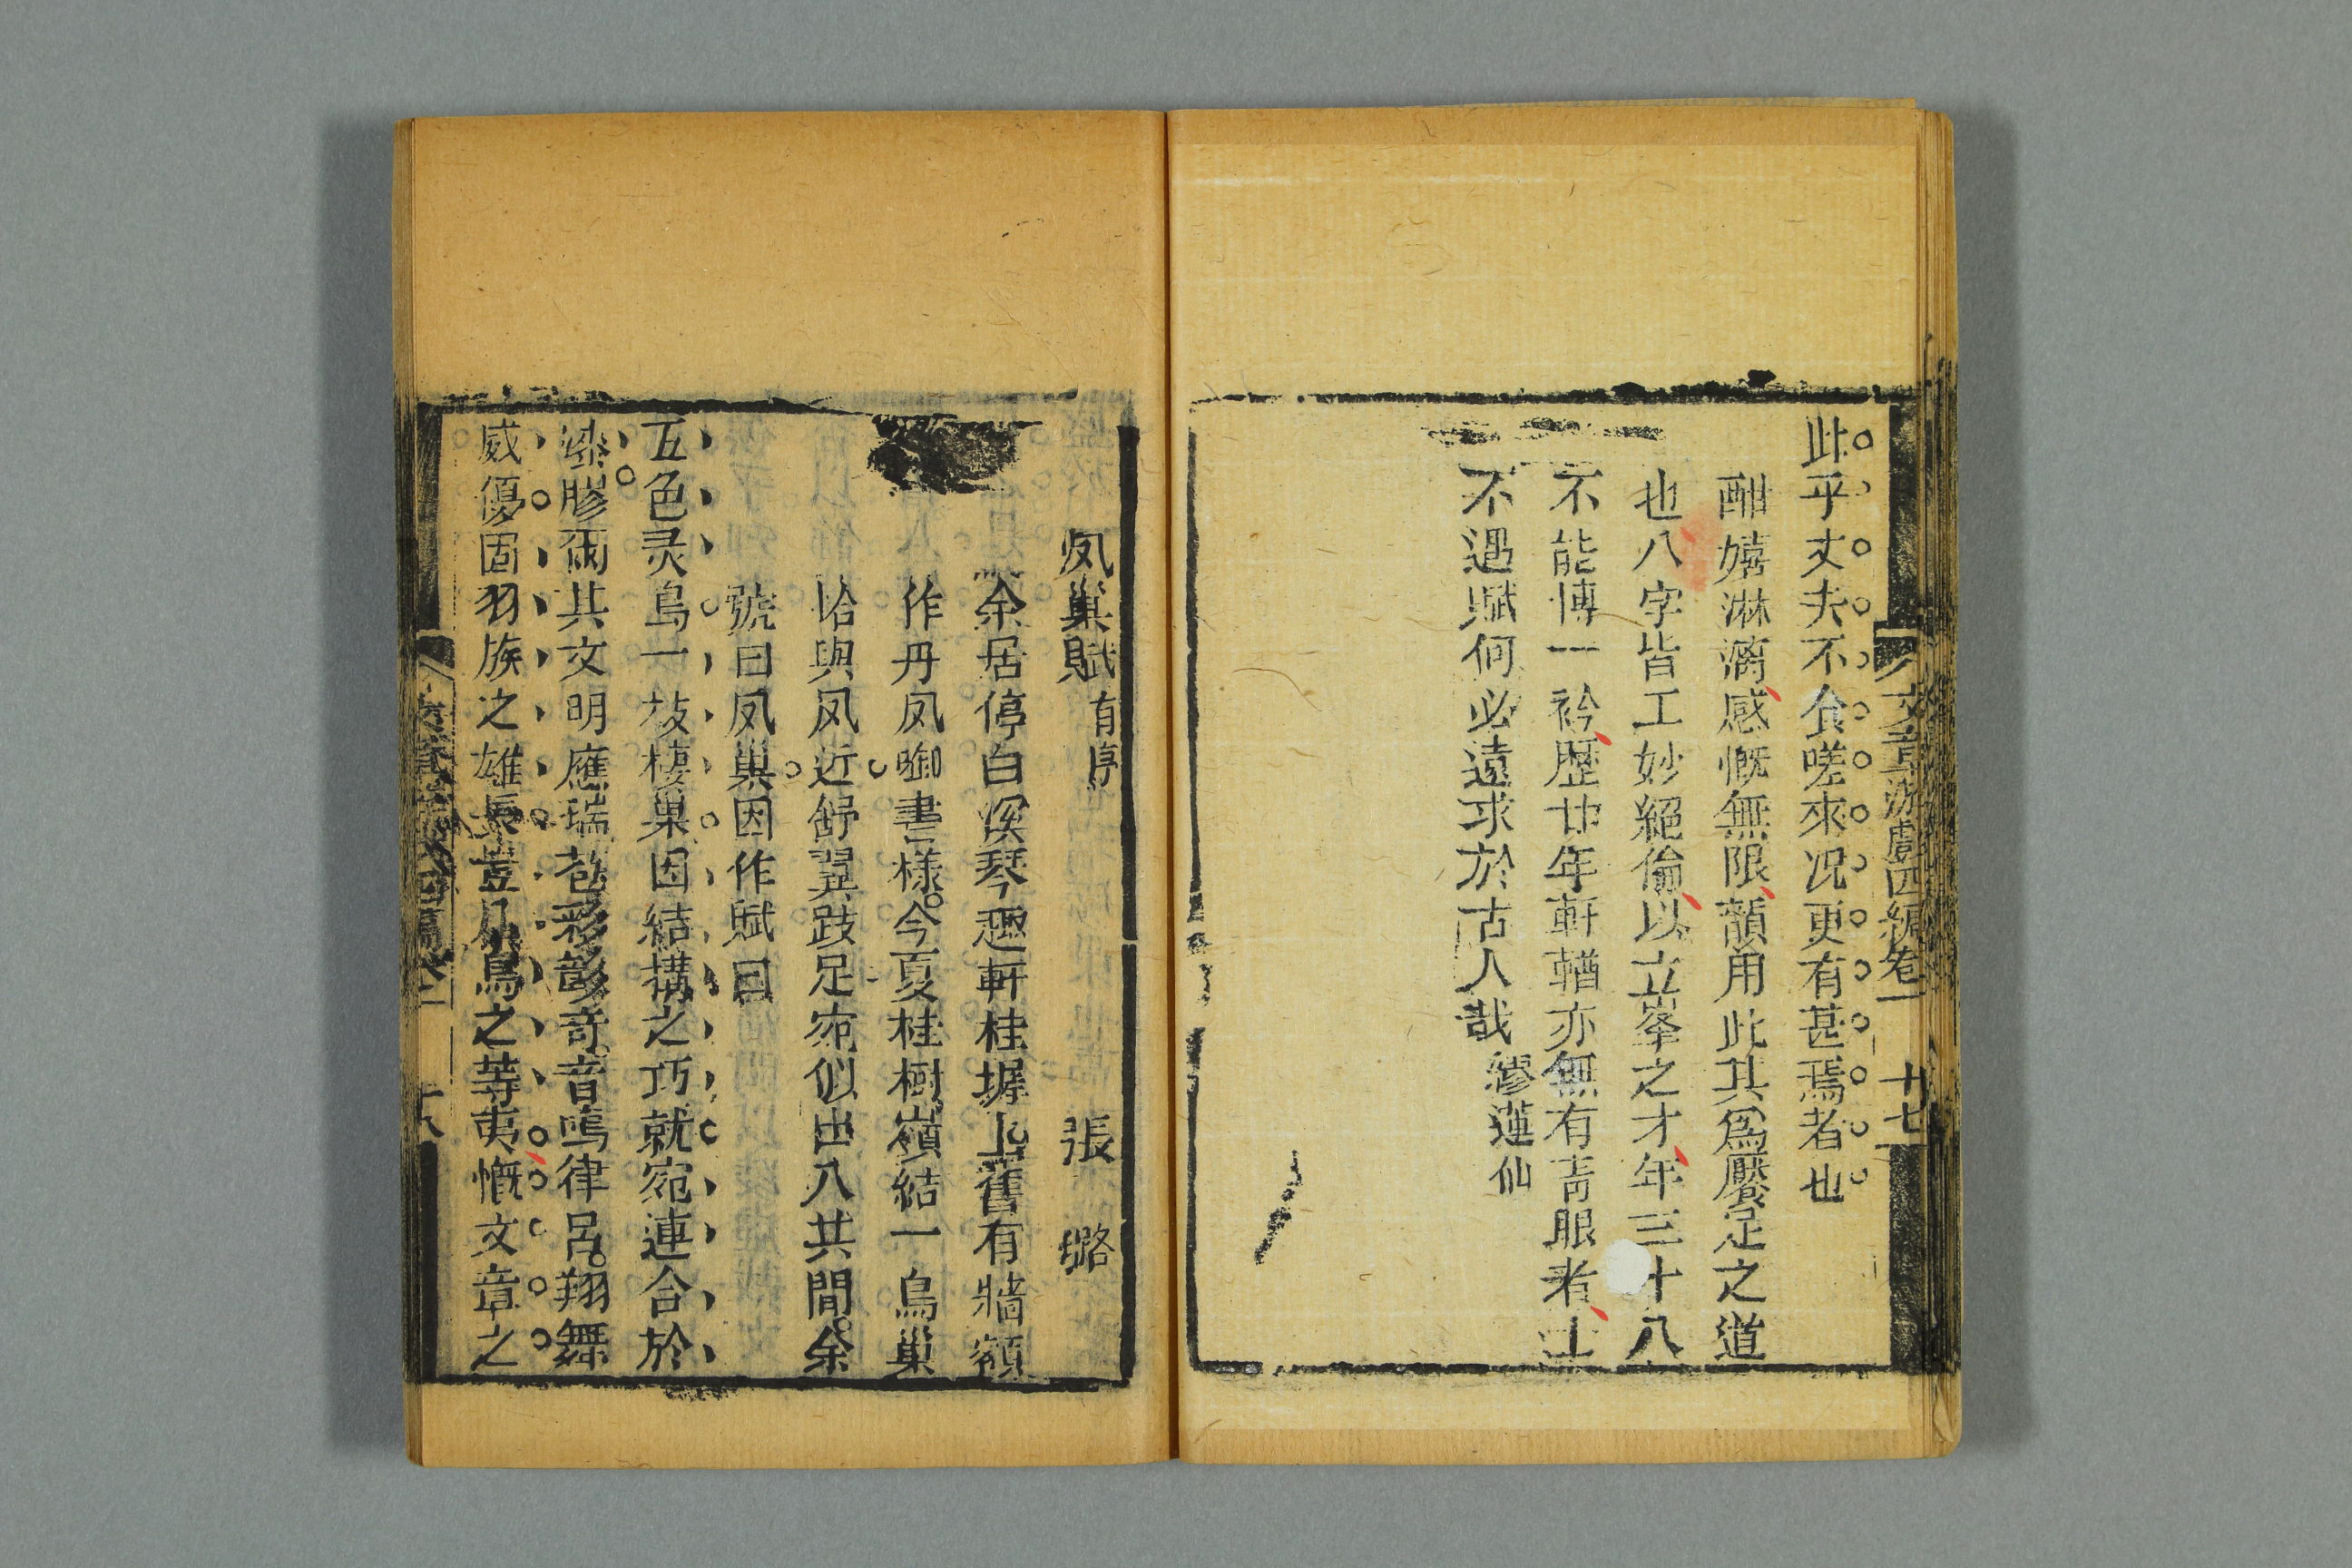 文章游戲四編卷一 十七
此乎丈夫不食嗟來况更有甚焉者也
酣嬉淋漓感慨無限韻用此其爲饜足之道
也八字皆工妙絕倫以立峯之才年三十八
不能博一衿歷廿年軒輶亦無有靑眼者士
不遇賦何必遠求於古人哉 繆蓮仙
凤巢賦 有序 張 璐
余居停白溪琴趣軒桂墀上舊有牆額
作丹凤啣書樣今夏桂樹嶺結一鳥巢
恰與凤近舒翼跂足宛似出入其間余
號曰凤巢因作賦曰
五色灵鳥一枝棲巢因結構之巧就宛連合於
漆膠爾其文明應瑞苞彩彰奇音鳴律呂翔舞
威優固羽族之雄長豈凡鳥之等夷慨文章之
文章游戲四編卷一 十八